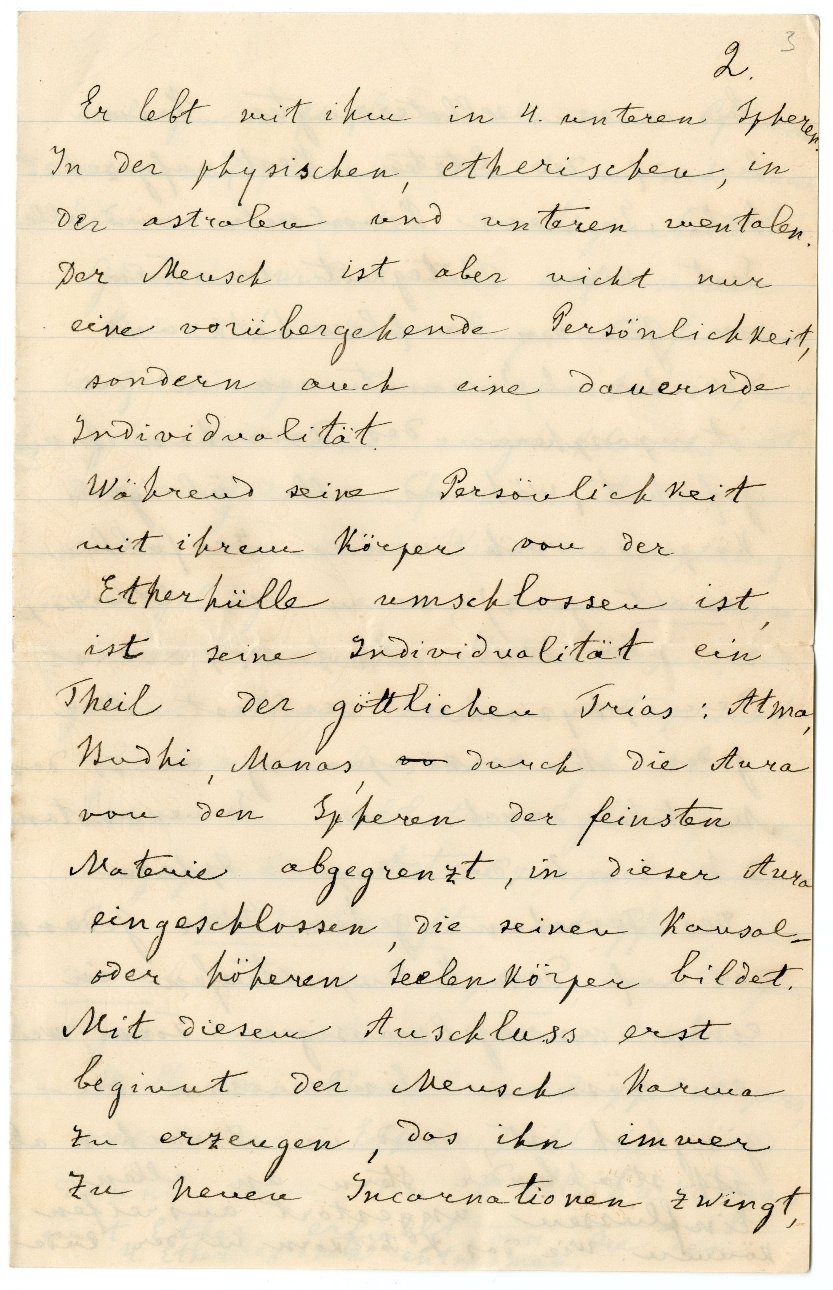 3
2.
Er lebt mit ihm in 4. unteren Spheren.
In der physischen, etherischen, in
der astralen und unteren mentalen.
Der Mensch ist aber nicht nur
eine vorübergehende Persönlichkeit,
sondern auch eine dauernde
Individualität.
Während seine Persönlichkeit
mit ihrem Körper von der
Etherhülle umschlossen ist,
ist seine Individualität ein
Theil der göttlichen Trias: Atma,
Budhi, Manas, durch die Aura
von den Spheren der feinsten
Materie abgegrenzt, in dieser Aura
eingeschlossen, die seinen Kausal-
oder höheren Seelenkörper bildet.
Mit diesem Anschluss erst
beginnt der Mensch Karma
zu erzeugen, das ihn immer
zu neuen Incarnationen zwingt,